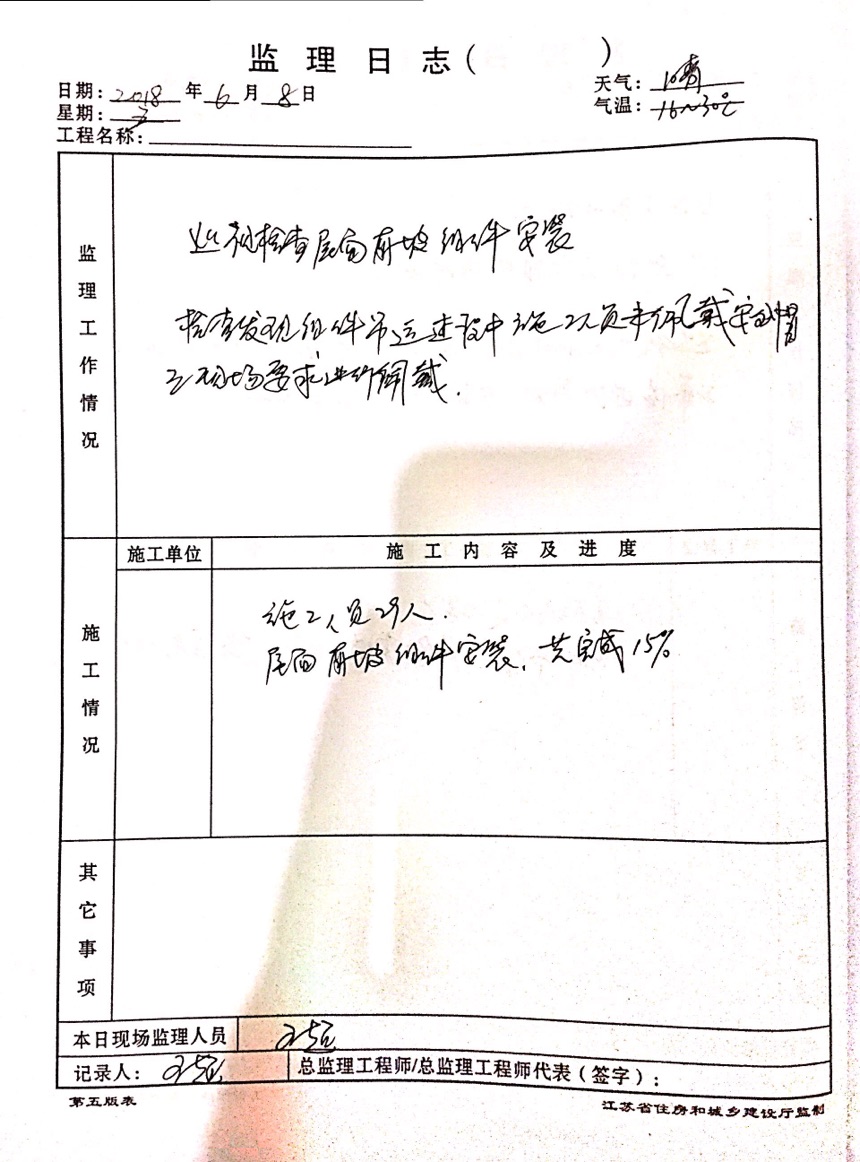 监理日志（ ）
日期：2018年6月8日
天气：晴
星期：五
气温：16~30℃
工程名称：
监理工作情况
巡视检查屋面南坡组件安装
检查发现组件吊运过程中施工人员未佩戴安全帽
现场要求进行佩戴.
施工情况
施工单位
施工内容及进度
施工人员29人.
屋面南坡组件安装, 共完成15%
其它事项
本日现场监理人员 王超
记录人：王超
总监理工程师/总监理工程师代表（签字）：
第五版表
江苏省住房和城乡建设厅监制